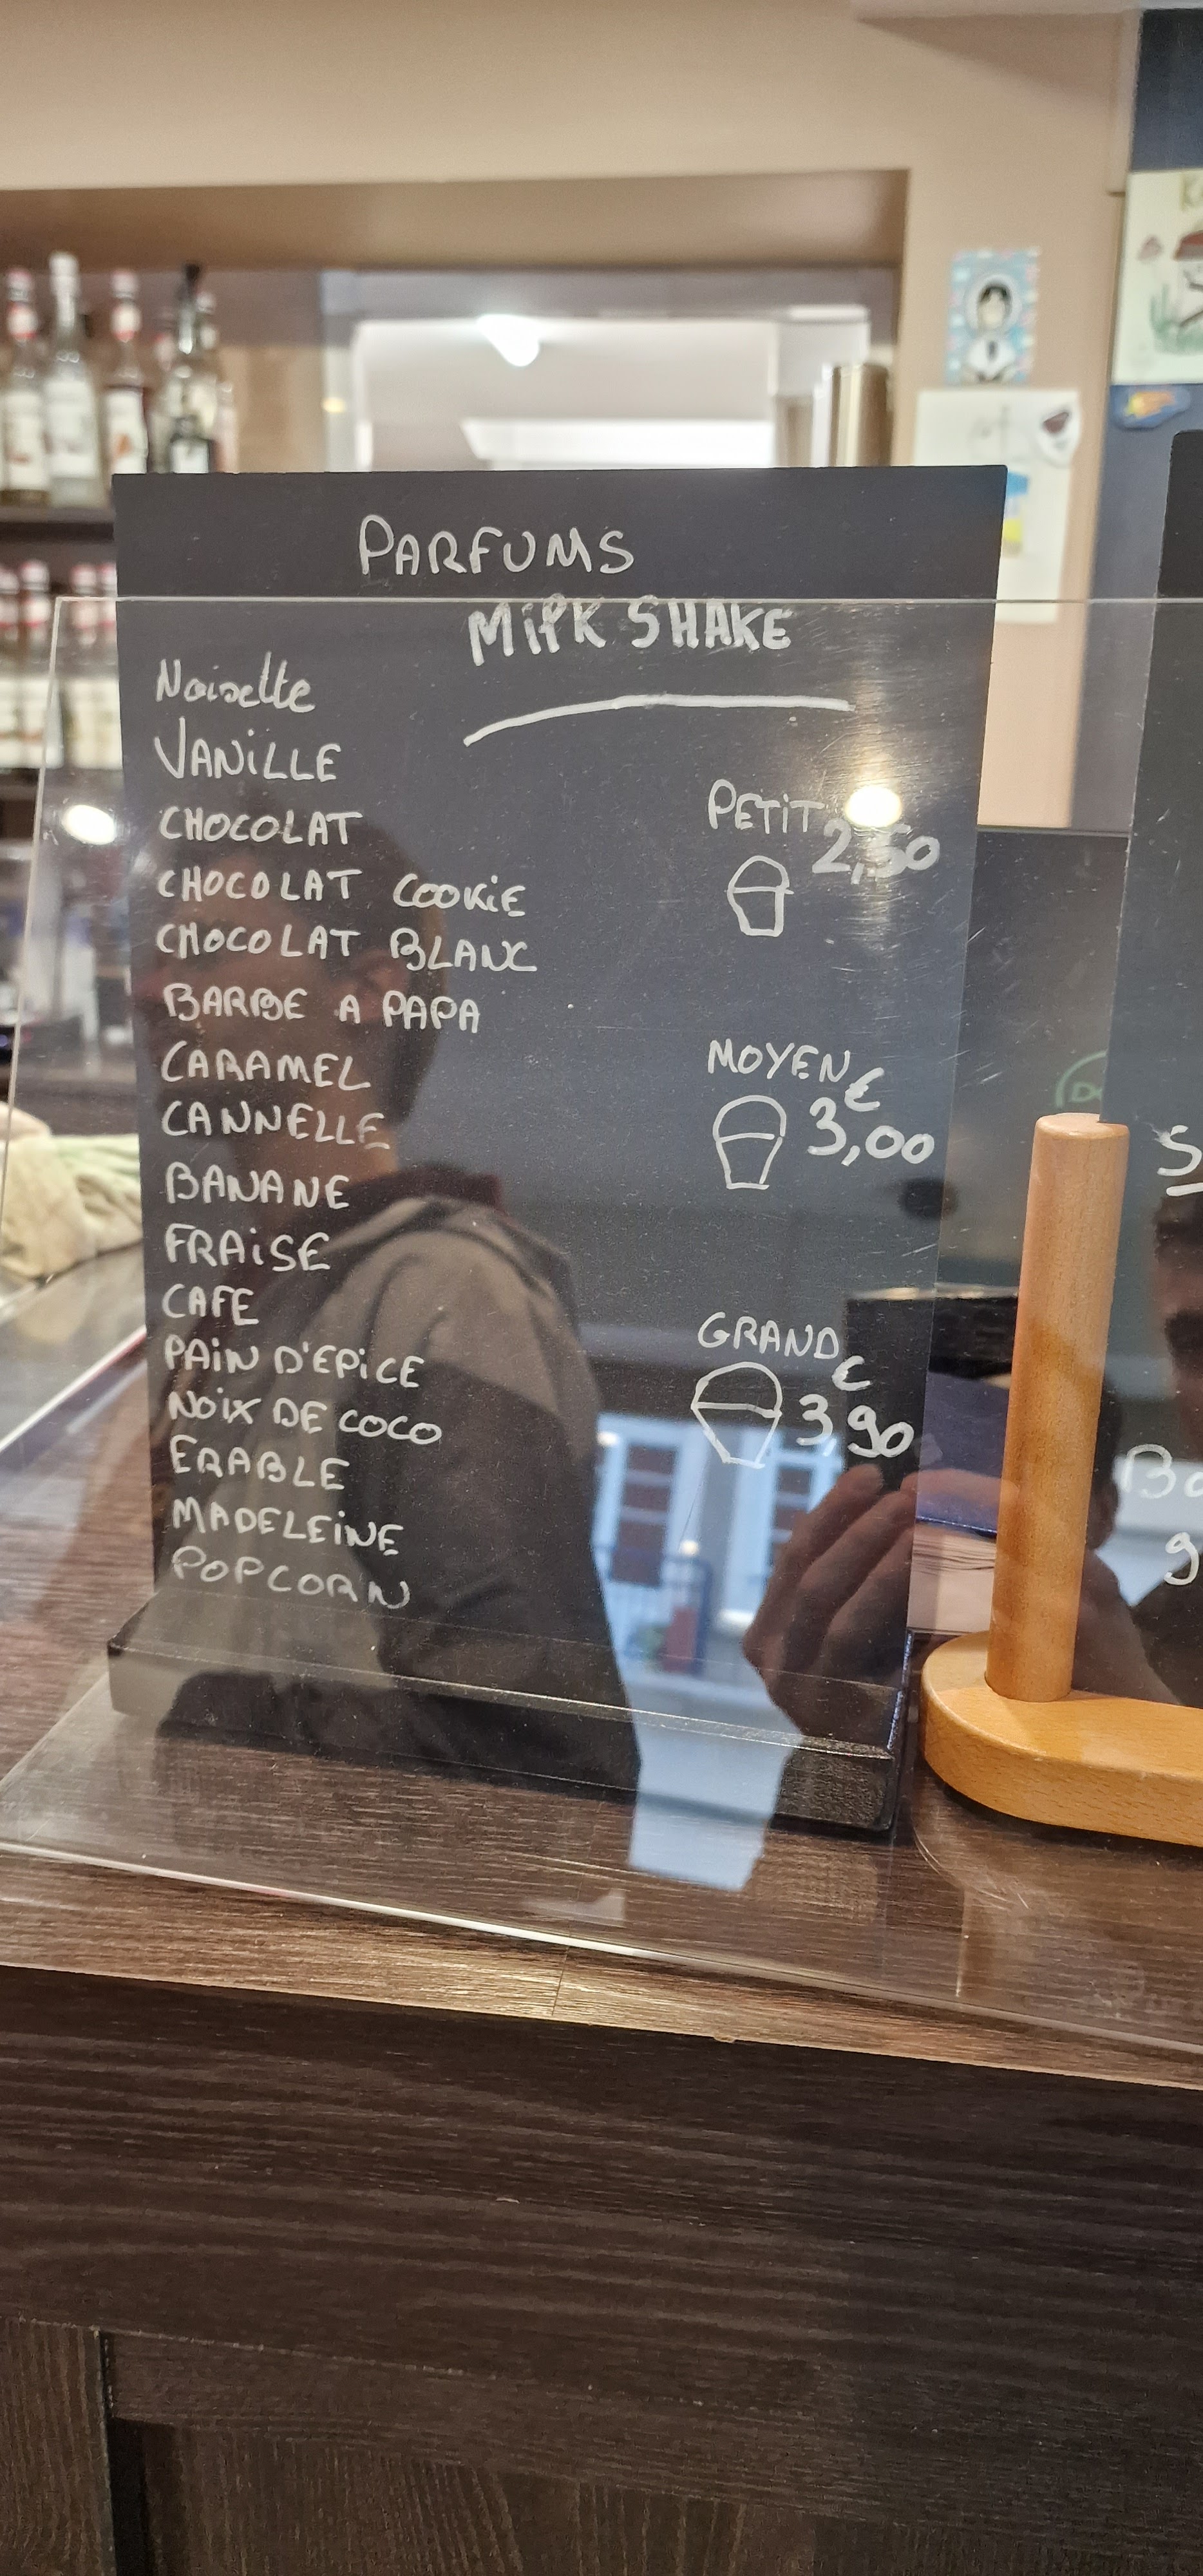 PARFUMS
MILK SHAKE
Noisette
VANILLE
CHOCOLAT
CHOCOLAT COOKIE
CHOCOLAT BLANC
BARBE A PAPA
CARAMEL
CANNELLE
BANANE
FRAISE
CAFE
PAIN D'EPICE
NOIX DE COCO
ERABLE
MADELEINE
POPCORN
PETIT
2,50
MOYEN
€
3,00
GRAND
€
3,90